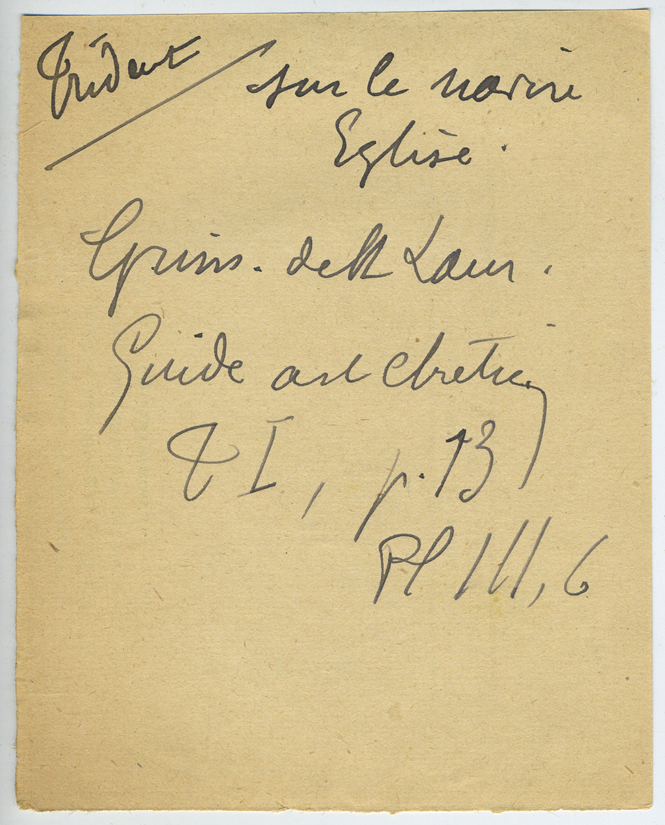 Trident
sur le navire
Eglise.
Grim. de St Laur.
Guide art chrétien
T I, p. 13
Pl III, 6